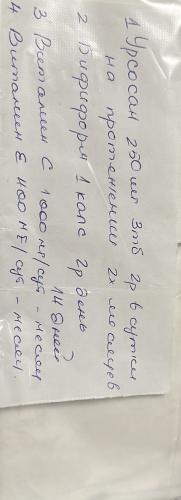 1 Урсосан 250мг 3тб 2р в сутки
на протяжении 2х месяцев
2 Бифиформ 1 капс 2р день
14 дней
3 Витамин С 1000 мг/сут - месяц
4 Витамин Е 400 МЕ/сут - месяц.